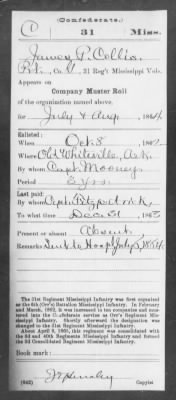 (Confederate.)
C 31 Miss.
James P. Collis
Pvt., Co. , 31 Reg't Mississippi Vols.
Appears on
Company Muster Roll
of the organization named above,
for July & Aug, 1864.
Enlisted:
When Oct 8, 186
Where Old Whiteville, Ark.
By whom Capt. Mooney
Period 3 yrs.
Last paid:
By whom Capt. Fitzpatrick
To what time Dec 31, 1863
Present or absent Absent
Remarks Sent to Hosp. July 1864
The 31st Regiment Mississippi Infantry was first organized
as the 6th (Orr's) Battalion Mississippi Infantry. In February
and March, 1862, it was increased to ten companies and mus-
tered into the Confederate service as Orr's Regiment Mis-
sissippi Infantry. Shortly afterward the designation was
changed to the 31st Regiment Mississippi Infantry.
About April 9, 1865, this regiment was consolidated with the
3d and 40th Regiments Mississippi Infantry and formed the
3d Consolidated Regiment Mississippi Infantry.
Book mark:
(642) Copyist